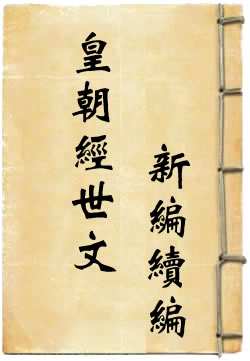 皇朝經世文
新編續編